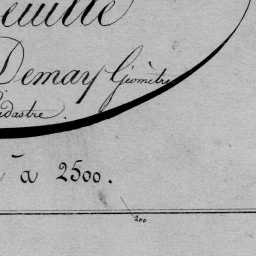 euille
Demay Géomètre
adastre.
à 2500.
200